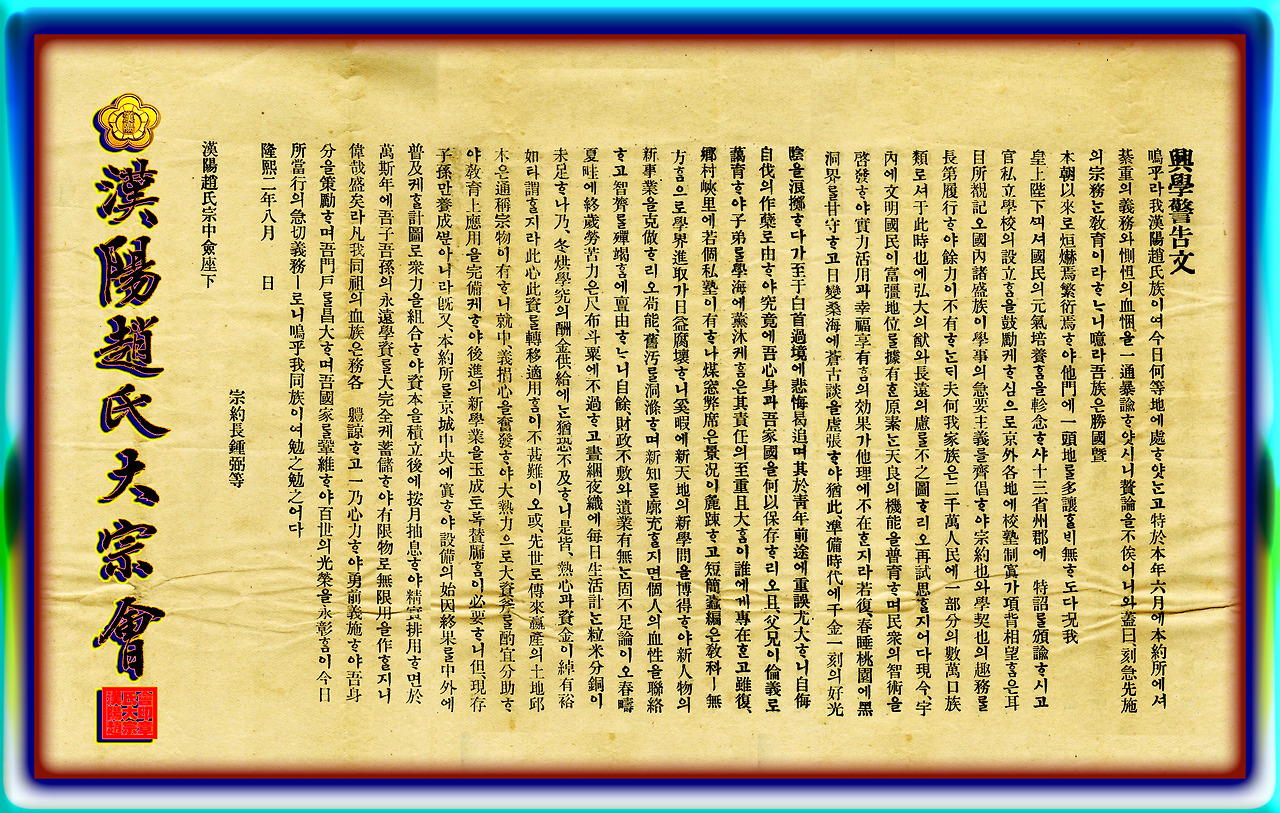 興學警告文
嗚乎라我漢陽趙氏族이여今日何等地에處ᄒᆞ얏ᄂᆞᆫ고特於本年六月에本約所에셔
綦重의義務와惻怛의血悃을一通暴諭ᄒᆞ얏시니贅論을不俟어니와蓋曰刻急先施
의宗務ᄂᆞᆫ敎育이라ᄒᆞᄂᆞ니噫라吾族은勝國曁
本朝以來로烜爀焉繁衍焉ᄒᆞ야他門에一頭地를多讓ᄒᆞᆯ비無ᄒᆞ도다况我
皇上陛下ᄭᅴ셔國民의元氣培養ᄒᆞᆷ을軫念ᄒᆞ샤十三省州郡에 特詔를頒諭ᄒᆞ시고
官私立學校의設立ᄒᆞᆷ을鼓勵케ᄒᆞ심으로京外各地에校塾制寘가項背相望ᄒᆞᆷ은耳
目所覩記오國內諸盛族이學事의急要主義를齊倡ᄒᆞ야宗約也와學契也의趣務를
長第履行ᄒᆞ야餘力이不有ᄒᆞᄂᆞᆫ되夫何我家族은二千萬人民에一部分의數萬口族
類로셔于此時也에弘大의猷와長遠의慮를不之圖ᄒᆞ리오再試思ᄒᆞᆯ지어다現今、宇
內에文明國民이富彊地位를據有ᄒᆞᆫ原素ᄂᆞᆫ天良의機能을普育ᄒᆞ며民衆의智術을
啓發ᄒᆞ야實力活用과幸福享有ᄒᆞᆷ의効果가他理에不在ᄒᆞᆫ지라若復、春睡桃園에黑
洞界를甘守ᄒᆞ고日變桑海에蒼古談을虛張ᄒᆞ야猶此、準備時代에千金一刻의好光
陰을浪擲ᄒᆞ다가至于白首過境에悲悔曷追며其於靑年前途에重誤尤大ᄒᆞ니自侮
自伐의作孽로由ᄒᆞ야究竟에吾心身과吾家國을何以保存ᄒᆞ리오且、父兄이倫義로
萬育ᄒᆞ야子弟를學海에薰沐케ᄒᆞᆷ은其責任의至重且大ᄒᆞᆷ이誰에게專在ᄒᆞ고雖復、
鄕村峽里에若個私塾이有ᄒᆞ나煤窓弊席은景况이麁踈ᄒᆞ고短簡蠹編은敎科ㅣ無
方ᄒᆞᆷ으로學界進取가日益腐壞ᄒᆞ니奚暇에新天地의新學問을博得ᄒᆞ야新人物의
新事業을克做ᄒᆞ리오苟能、舊汚를洞滌ᄒᆞ며新知를廓充ᄒᆞᆯ지면個人의血性을聯絡
ᄒᆞ고智齊를殫竭ᄒᆞᆷ에亶由ᄒᆞᄂᆞ니自餘、財政不敷와遺業有無ᄂᆞᆫ固不足論이오春疇
夏畦에終歲勞苦力은尺布斗粟에不過ᄒᆞ고晝綑夜織에每日生活計ᄂᆞᆫ粒米分銅이
未足ᄒᆞ나乃、冬烘學究의酬金供給에ᄂᆞᆫ猶恐不及ᄒᆞ니是皆、熱心과資金이綽有裕
如라謂ᄒᆞᆯ지라此心此資를轉移適用ᄒᆞᆷ이不甚難이오或、先世로傳來贏產의土地邱
木은通稱宗物이有ᄒᆞ니就中、義捐心을奮發ᄒᆞ야大熱力으로大資斧를酌宜分助ᄒᆞ
야敎育上應用을完備케ᄒᆞ야後進의新學業을玉成토록賛勵ᄒᆞᆷ이必要ᄒᆞ니但、現存
子孫만養成ᄲᅮᆫ아니라旣又、本約所를京城中央에寘ᄒᆞ야設備의始因終果를中外에
普及케ᄒᆞᆯ計圖로衆力을組合ᄒᆞ야資本을積立後에按月拙息ᄒᆞ야精實排用ᄒᆞ면於
萬斯年에吾子吾孫의永遠學資를大完全케蓄儲ᄒᆞ야有限物로無限用을作ᄒᆞᆯ지니
偉哉盛矣라凡我同祖의血族은務各 軆諒ᄒᆞ고一乃心力ᄒᆞ야勇前義施ᄒᆞ야吾身
分을策勵ᄒᆞ며吾門戶를昌大ᄒᆞ며吾國家를鞏維ᄒᆞ야百世의光榮을永彰ᄒᆞᆷ이今日
所當行의急切義務ㅣ로니嗚乎我同族이여勉之勉之어다
隆熙二年八月 日
宗約長鍾弼等
漢陽趙氏宗中僉座下
漢陽趙氏大宗會